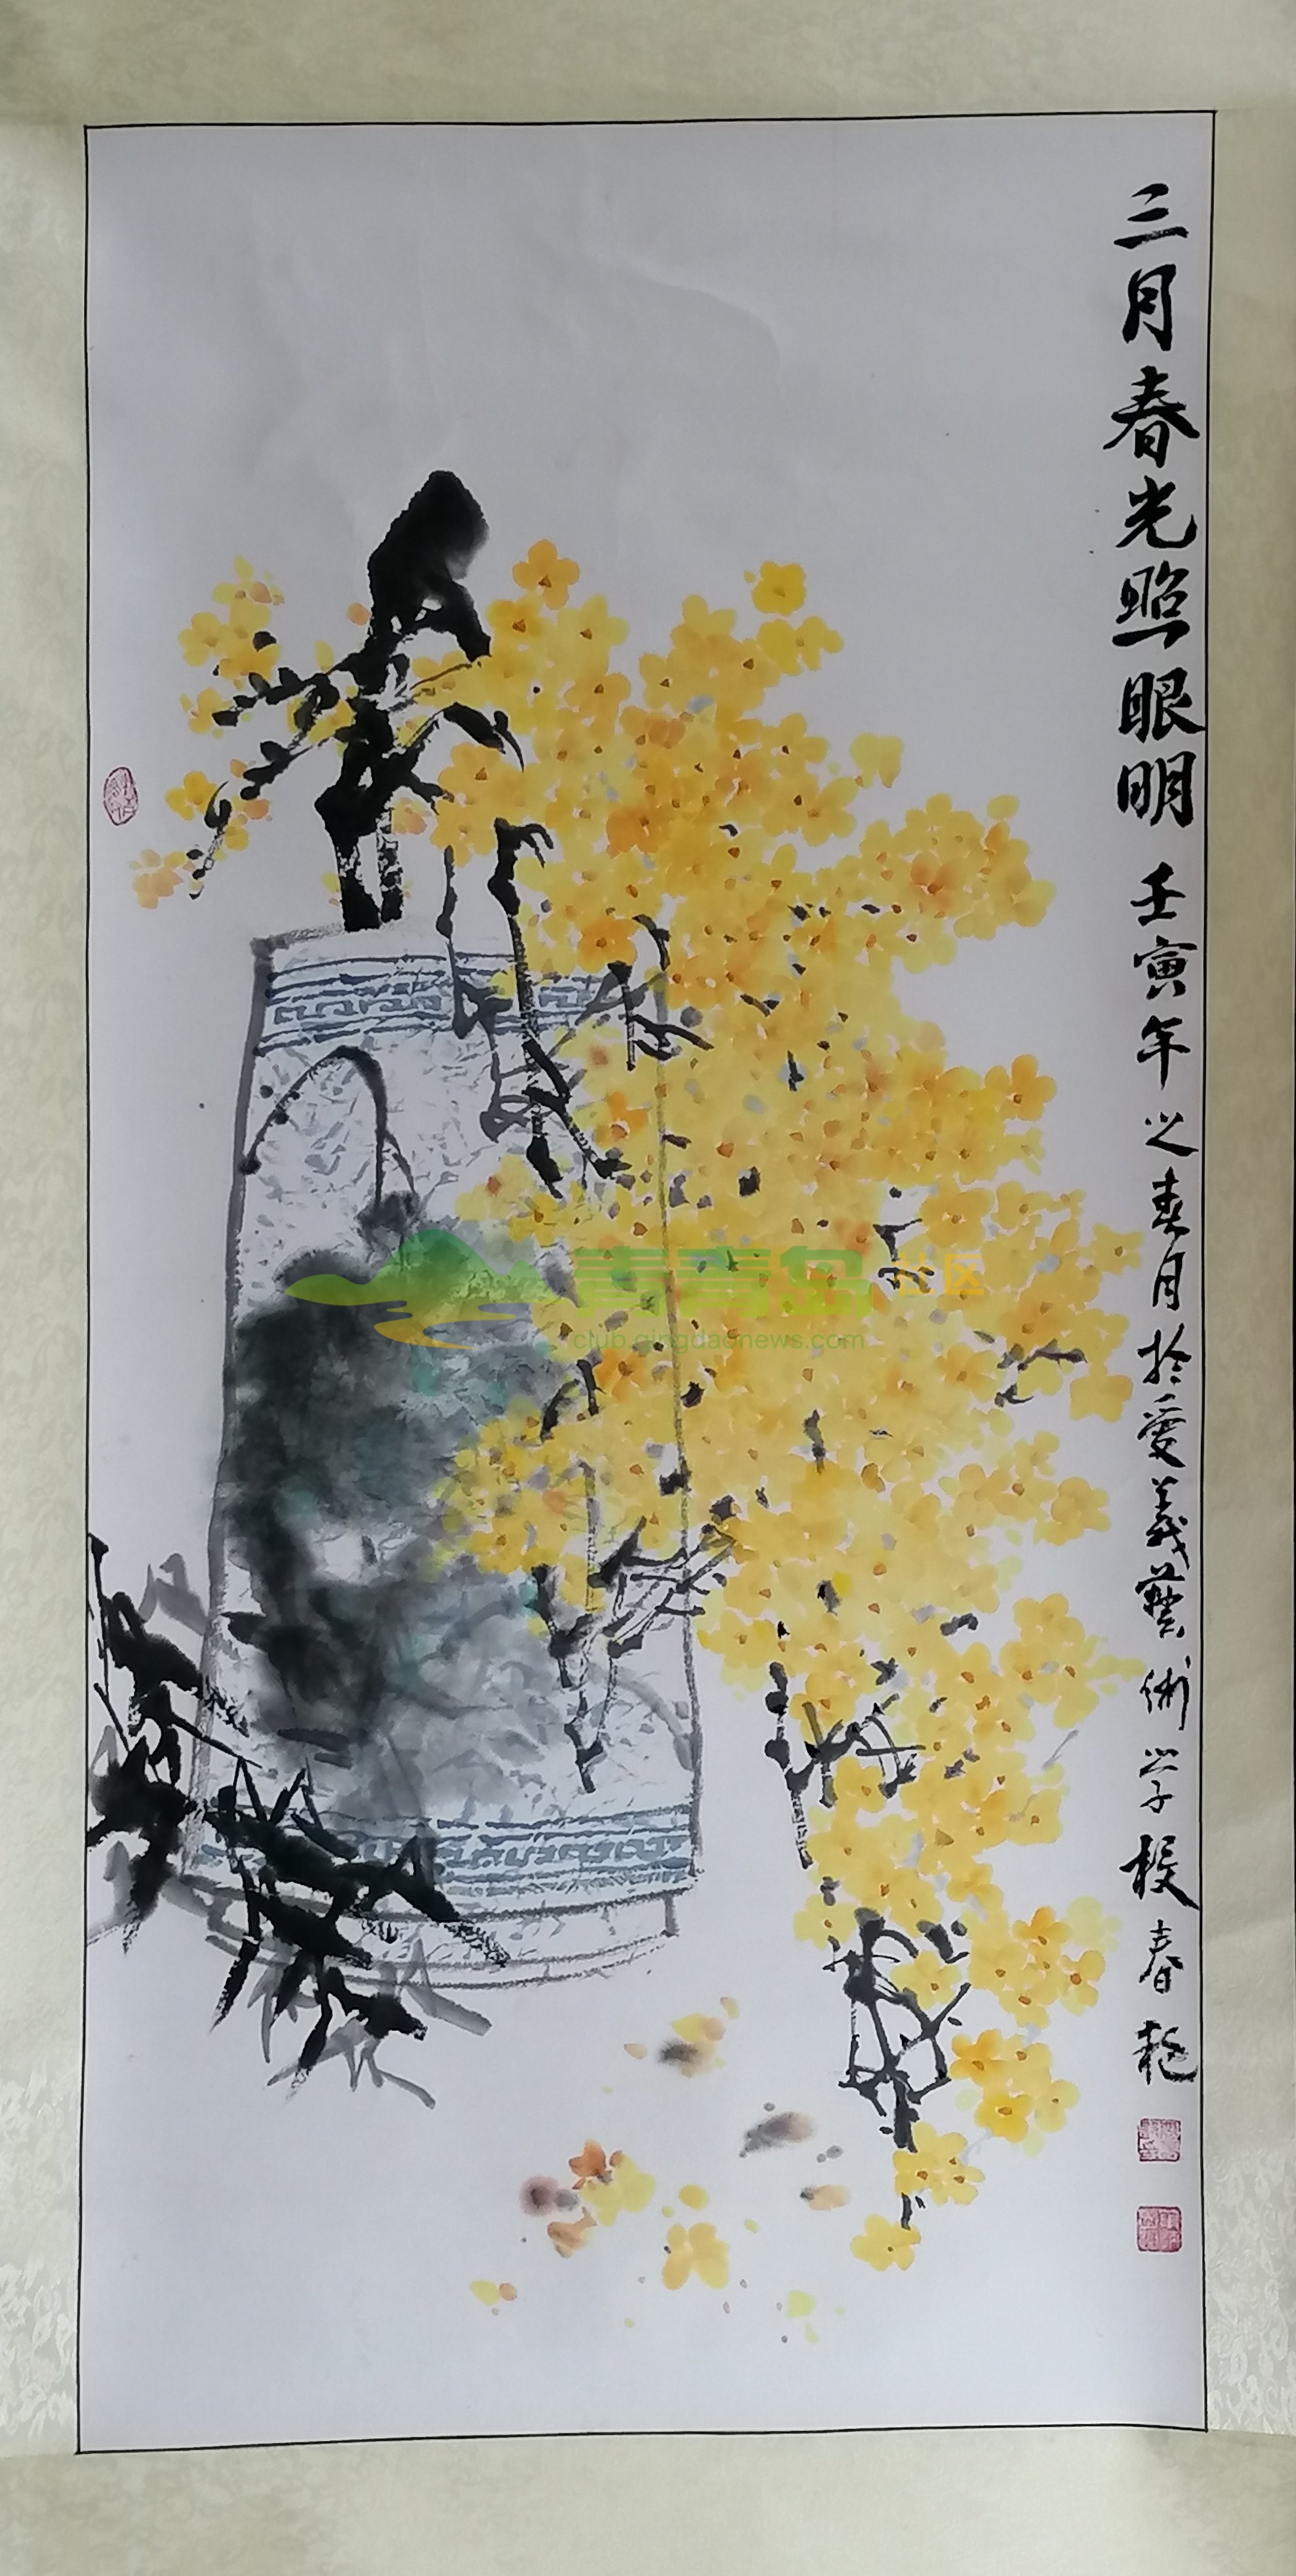 三月春光照眼明 壬寅年之春月於爱義藝術学校春艳
青青岛社区
club.qingdaonews.com